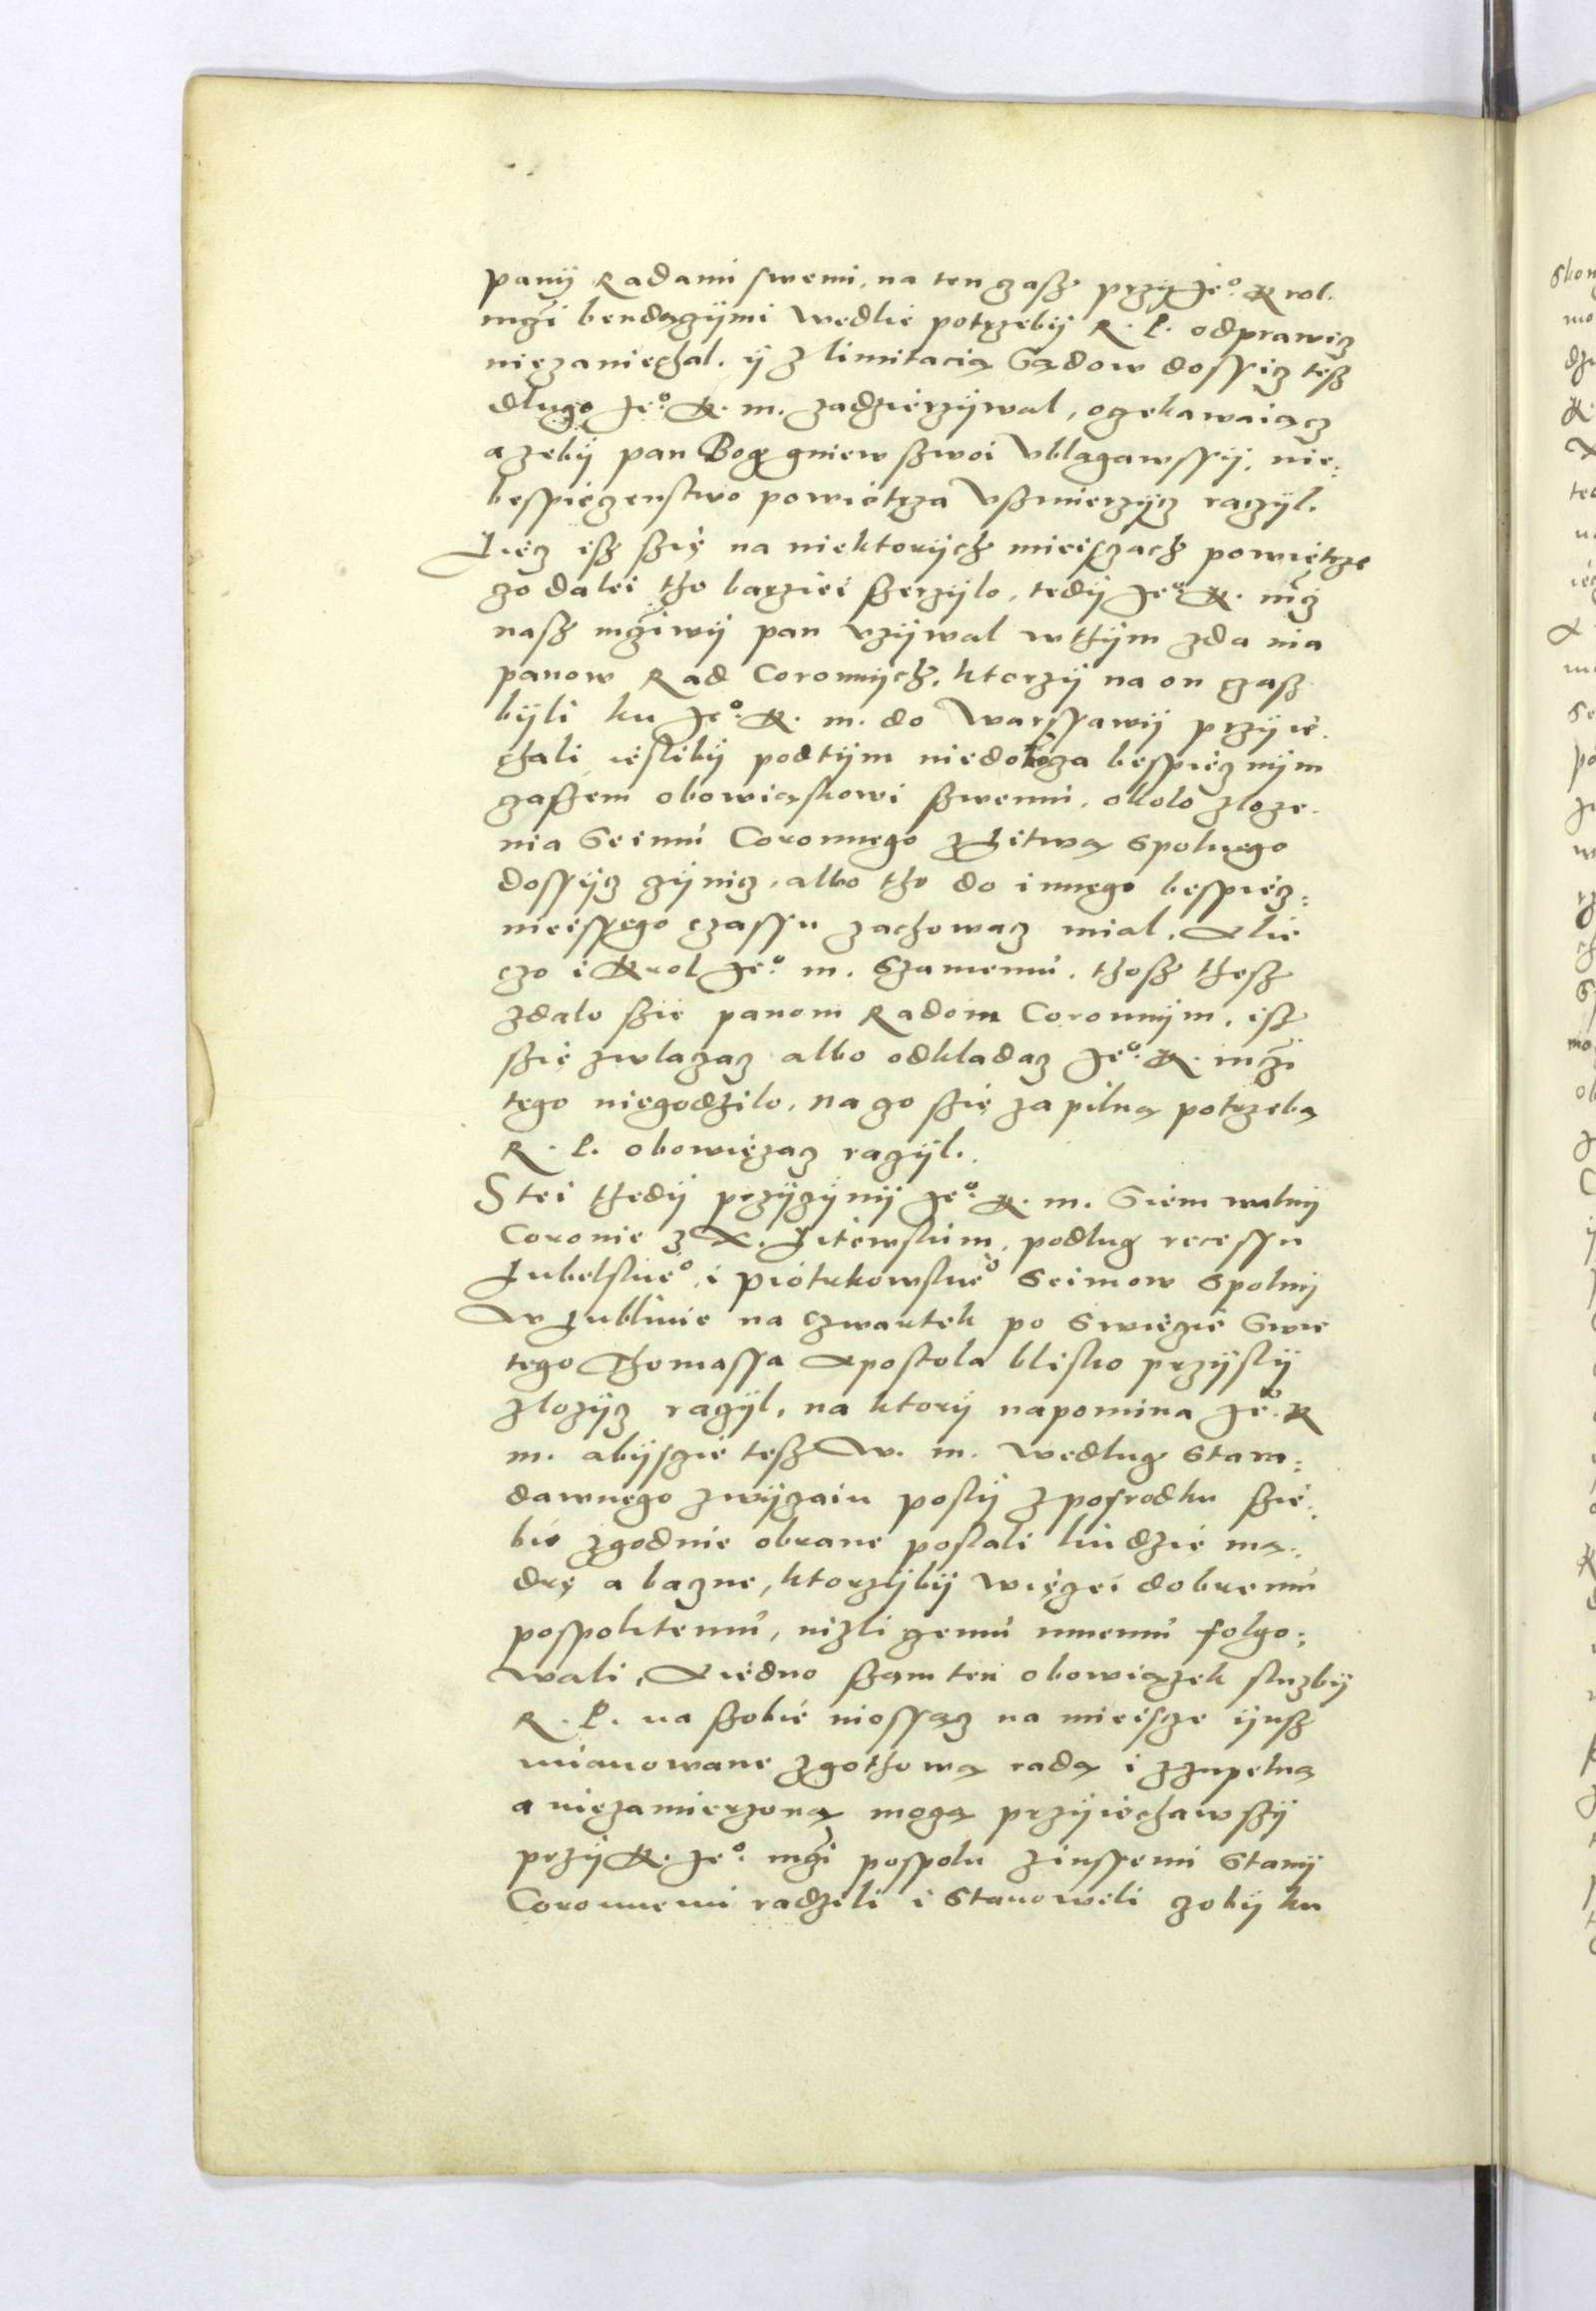 panÿ Radami swemi, na ten czassz przÿ Jeº Krol.
mczi bendączÿmi wedlie potrzebÿ R. P. odprawicz
niezaniechal. ÿ z limitacią Sądow dossicz tesz
dlugo Jeº K. m. zadzierzÿwal, oczekawaiącz
azebÿ pan Bog gniew szwoi vblagawssÿ, nie:
bespieczenstwo powietrza vszmierzÿcz raczÿl.
Liecz isz szię na niektorÿch mieisczach powiętrze
czo dalei tho barziei szerzÿlo, tedÿ Jeº K. mcz
nasz mcziwÿ pan vzÿwal w thÿm zdania
panow Rad Coronnÿch, ktorzÿ na on czasz
bÿli ku Jeº K. m. do Warssawÿ przÿie
chali iesliby podtÿm niedokącza bespiecznÿm
czassem obowiąskowi szwemu, okolo zloze.
nia Seimu Coronnego z Litwą spolnego
dossÿcz czÿnicz, albo tho do innego bespiecz:
nieissego czassu zachowacz mial, Alie
czo i Krol Jeº m. szamemu, thosz thesz
zdalo szie panom Radom Coronnÿm, isz
szię zwlaczacz albo odkladacz Jeº K. mczi
tego niegodzilo, na czo szię za pilną potrzebą
R. P. obowięzacz raczÿl.
Stei thedÿ przÿczÿnÿ Jeº K. m. Siem walnÿ
Coronie z X. Litewskim, podlug recessu
Lubelskieº i piotrkowskieº Seimow spolnÿ
W Lublinie na czwartek po swięcie Swie
tego Thomassa Apostola blisko przÿslÿ
zlozÿcz raczÿl, na ktorÿ napomina Jeº K
m. abÿsczie tesz W. m. według staro:
dawnego zwÿczaiu poslÿ z posrodku szie:
bie zgodnie obrane poslali liudzie mą:
drę a baczne, ktorzÿbÿ więczei dobremu
pospolitemu, nizli czemu innemu folgo:
wali, A iedno szam ten obowiązek sluzbÿ
R. P. na szobie niossącz na mieiscze ÿusz
mianowane z gothową radą i z zupelną
a niezamierzoną moczą przÿiechawszÿ
przÿ K. Jeº mczi pospolu z inssemi stanÿ
Coronnemi radzili i stanowili czobÿ ku